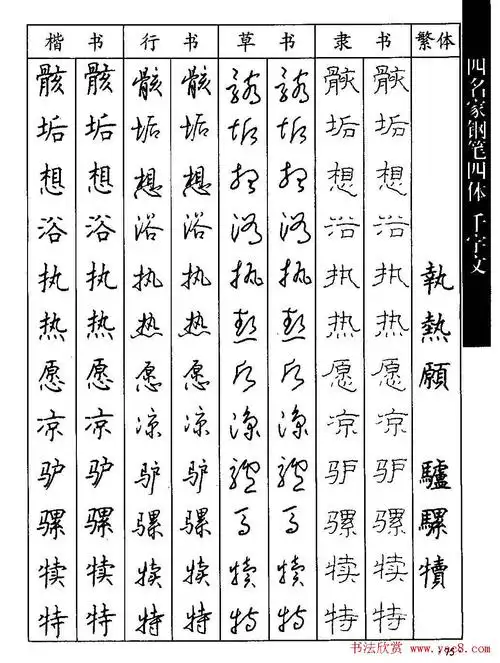 楷书 行书 草书 隶书 繁体
骸 骸 骸 骸 骸 骸 骸 骸
垢 垢 垢 垢 垢 垢 垢 垢
想 想 想 想 想 想 想 想
浴 浴 浴 浴 浴 浴 浴 浴
执 执 执 执 执 执 执 执 執
热 热 热 热 热 热 热 热 熱
愿 愿 愿 愿 愿 愿 愿 愿 願
凉 凉 凉 凉 凉 凉 凉 凉
驴 驴 驴 驴 驴 驴 驴 驴 驢
骡 骡 骡 骡 骡 骡 骡 骡 騾
犊 犊 犊 犊 犊 犊 犊 犊 犢
特 特 特 特 特 特 特 特
四名家钢笔四体 千字文
75
书法欣赏
www.yac8.com